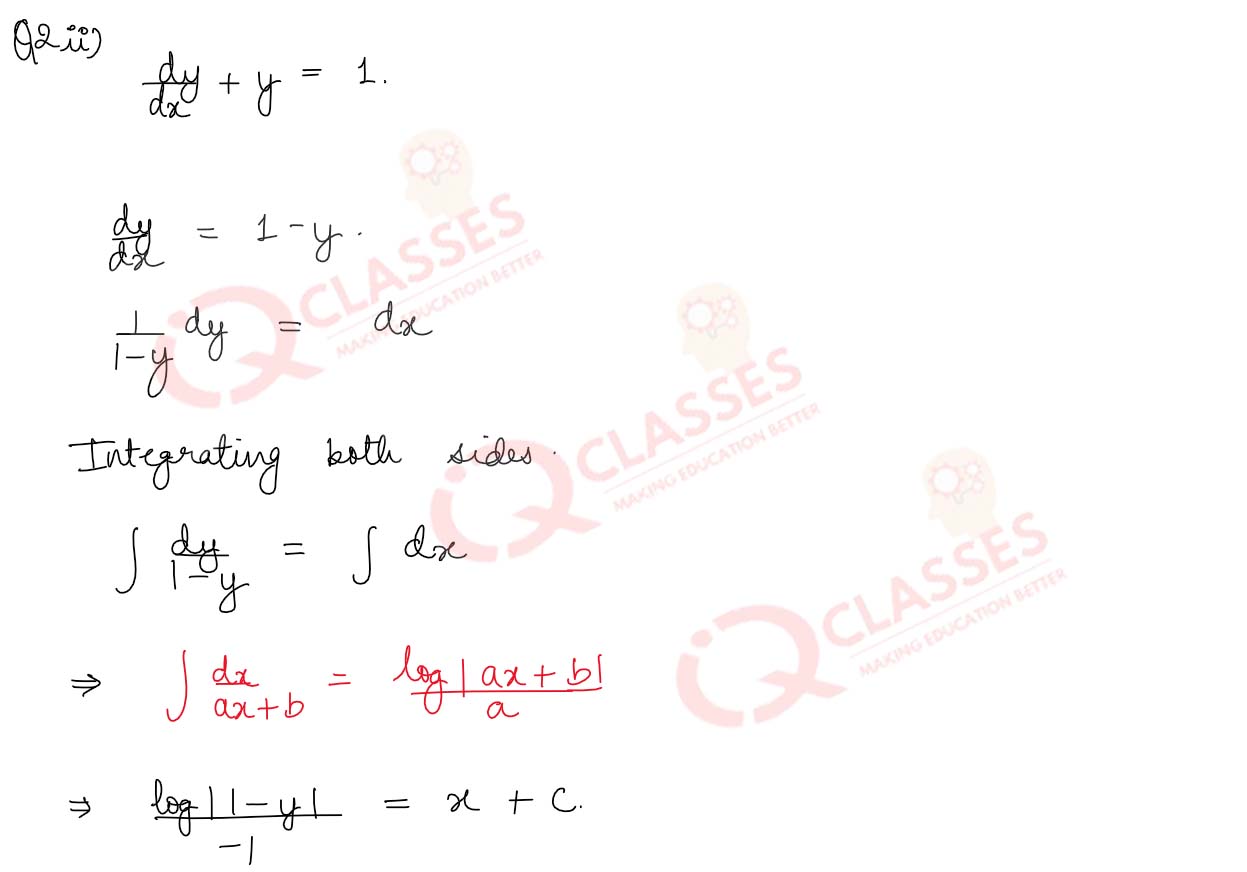 Q2 ii)
dy/dx + y = 1.
dy/dx = 1 - y.
1/(1-y) dy = dx
Integrating both sides.
∫ dy/(1-y) = ∫ dx
⇒ ∫ dx/(ax+b) = log|ax+b|/a
⇒ log|1-y|/-1 = x + C.
iQ CLASSES
MAKING EDUCATION BETTER
iQ CLASSES
MAKING EDUCATION BETTER
iQ CLASSES
MAKING EDUCATION BETTER